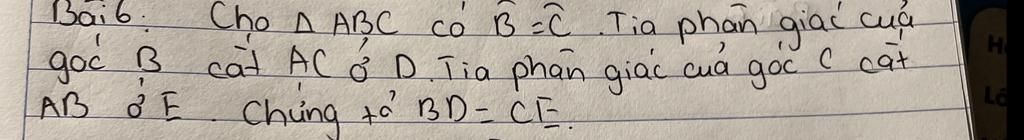 Bài 6: Cho Δ ABC có B̂ = Ĉ. Tia phân giác của
góc B cắt AC ở D. Tia phân giác của góc C cắt
AB ở E. Chứng tỏ BD = CE.